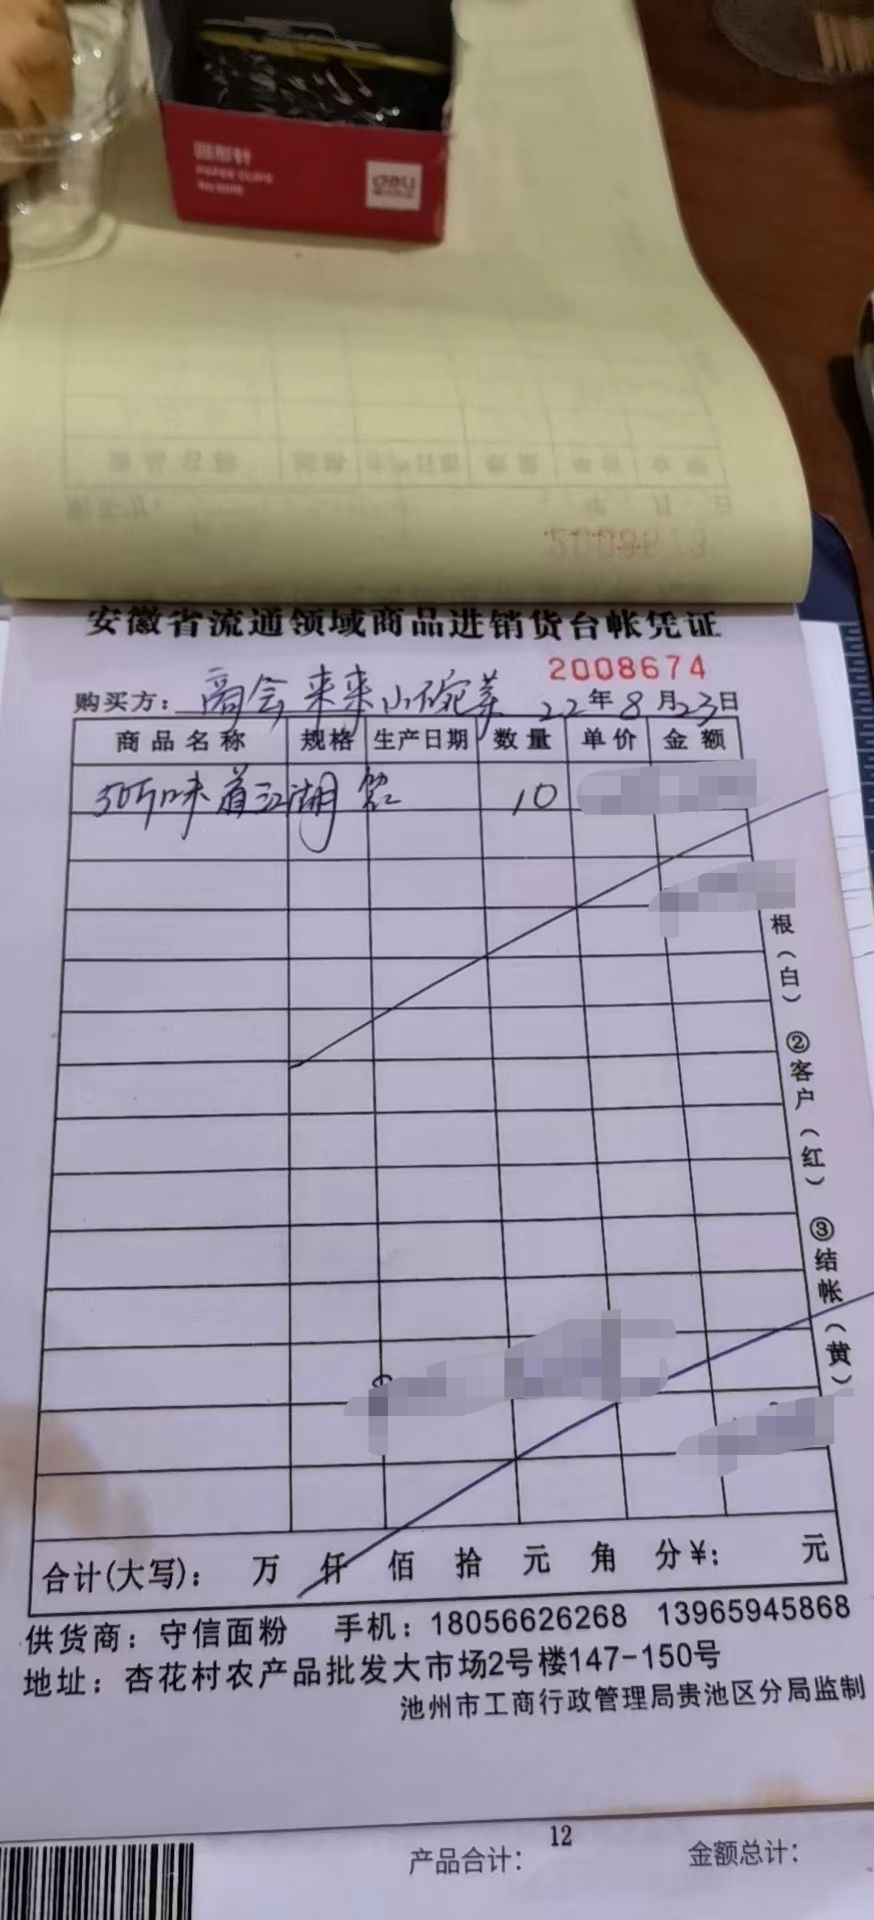 回形针
PAPER CLIPS
deli
安徽省流通领域商品进销货台帐凭证
2008674
购买方：商会来来小碗菜 22年8月23日
商品名称 规格 生产日期 数量 单价 金额
味着江湖 10
根（白） ②客户（红） ③结帐（黄）
合计(大写)： 万 仟 佰 拾 元 角 分¥： 元
供货商：守信面粉 手机：18056626268 13965945868
地址：杏花村农产品批发大市场2号楼147-150号
池州市工商行政管理局贵池区分局监制
产品合计： 12 金额总计：